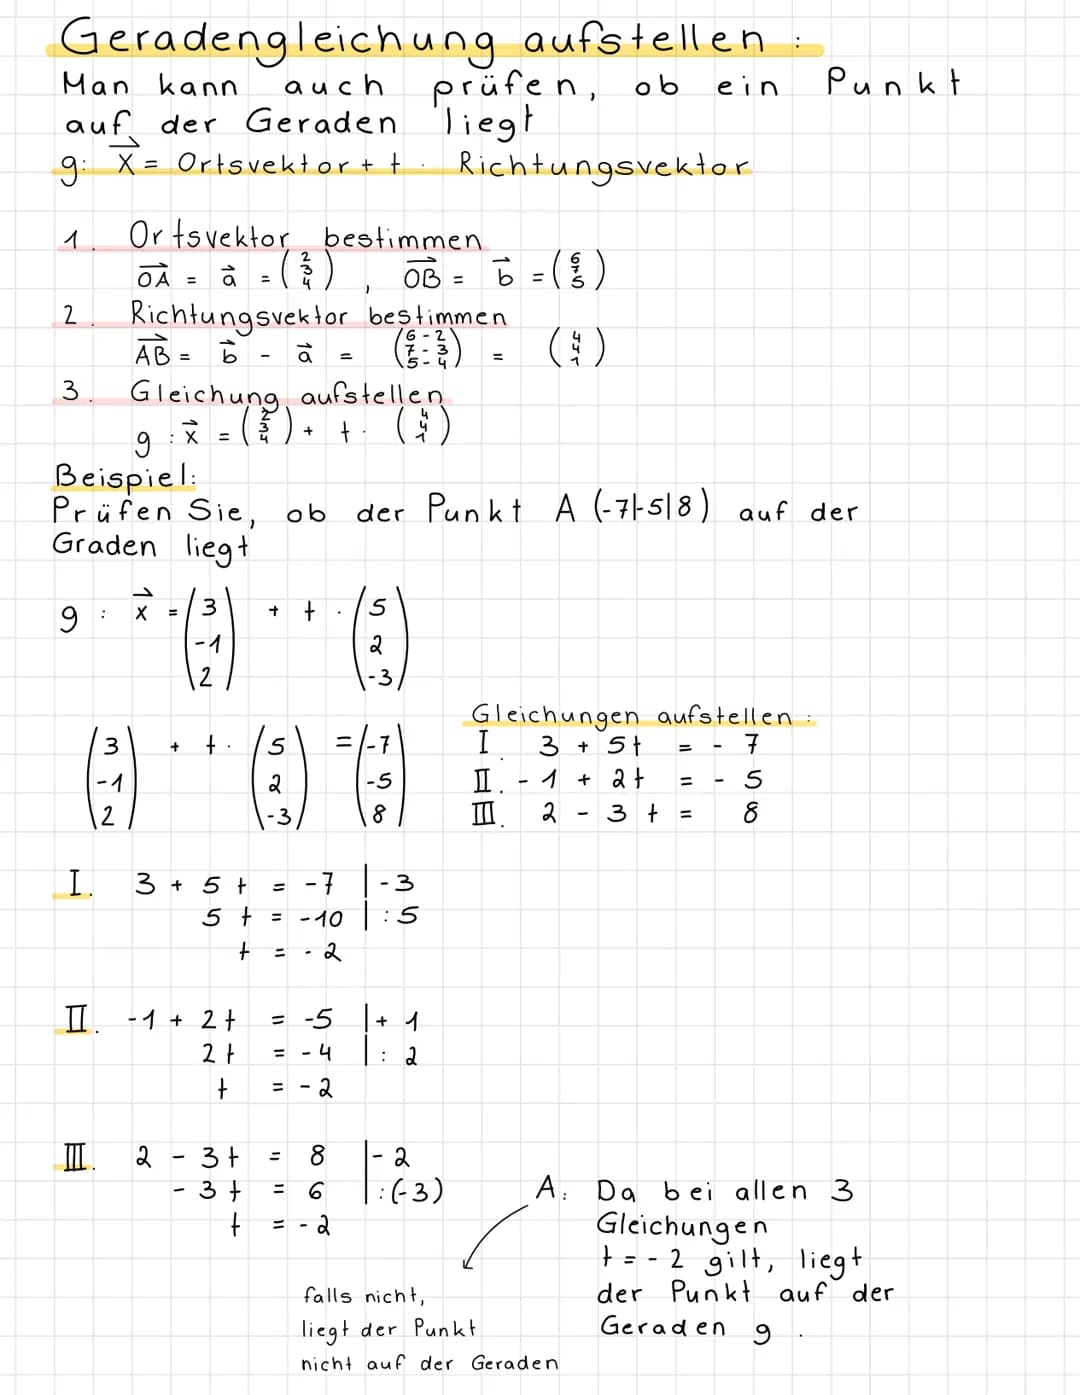 Geradengleichung aufstellen :
Man kann auch prüfen, ob ein Punkt
auf der Geraden liegt
g: x⃗ = Ortsvektor + t . Richtungsvektor
1. Ortsvektor bestimmen
OA⃗ = a⃗ = (2 3 4) , OB⃗ = b⃗ = (6 7 5)
2. Richtungsvektor bestimmen
AB⃗ = b⃗ - a⃗ = (6-2 7-3 5-4) = (4 4 1)
3. Gleichung aufstellen
g : x⃗ = (2 3 4) + t · (4 4 1)
Beispiel:
Prüfen Sie, ob der Punkt A (-7|-5|8) auf der
Graden liegt
g : x⃗ = (3 -1 2) + t · (5 2 -3)
(3 -1 2) + t · (5 2 -3) = (-7 -5 8)
Gleichungen aufstellen :
I. 3 + 5t = - 7
II. - 1 + 2t = - 5
III. 2 - 3t = 8
I. 3 + 5t = -7 | -3
5t = -10 | :5
t = -2
II. -1 + 2t = -5 | + 1
2t = -4 | : 2
t = -2
III. 2 - 3t = 8 | - 2
- 3t = 6 | :(-3)
t = -2
A: Da bei allen 3
Gleichungen
t = -2 gilt, liegt
der Punkt auf der
Geraden g .
falls nicht,
liegt der Punkt
nicht auf der Geraden